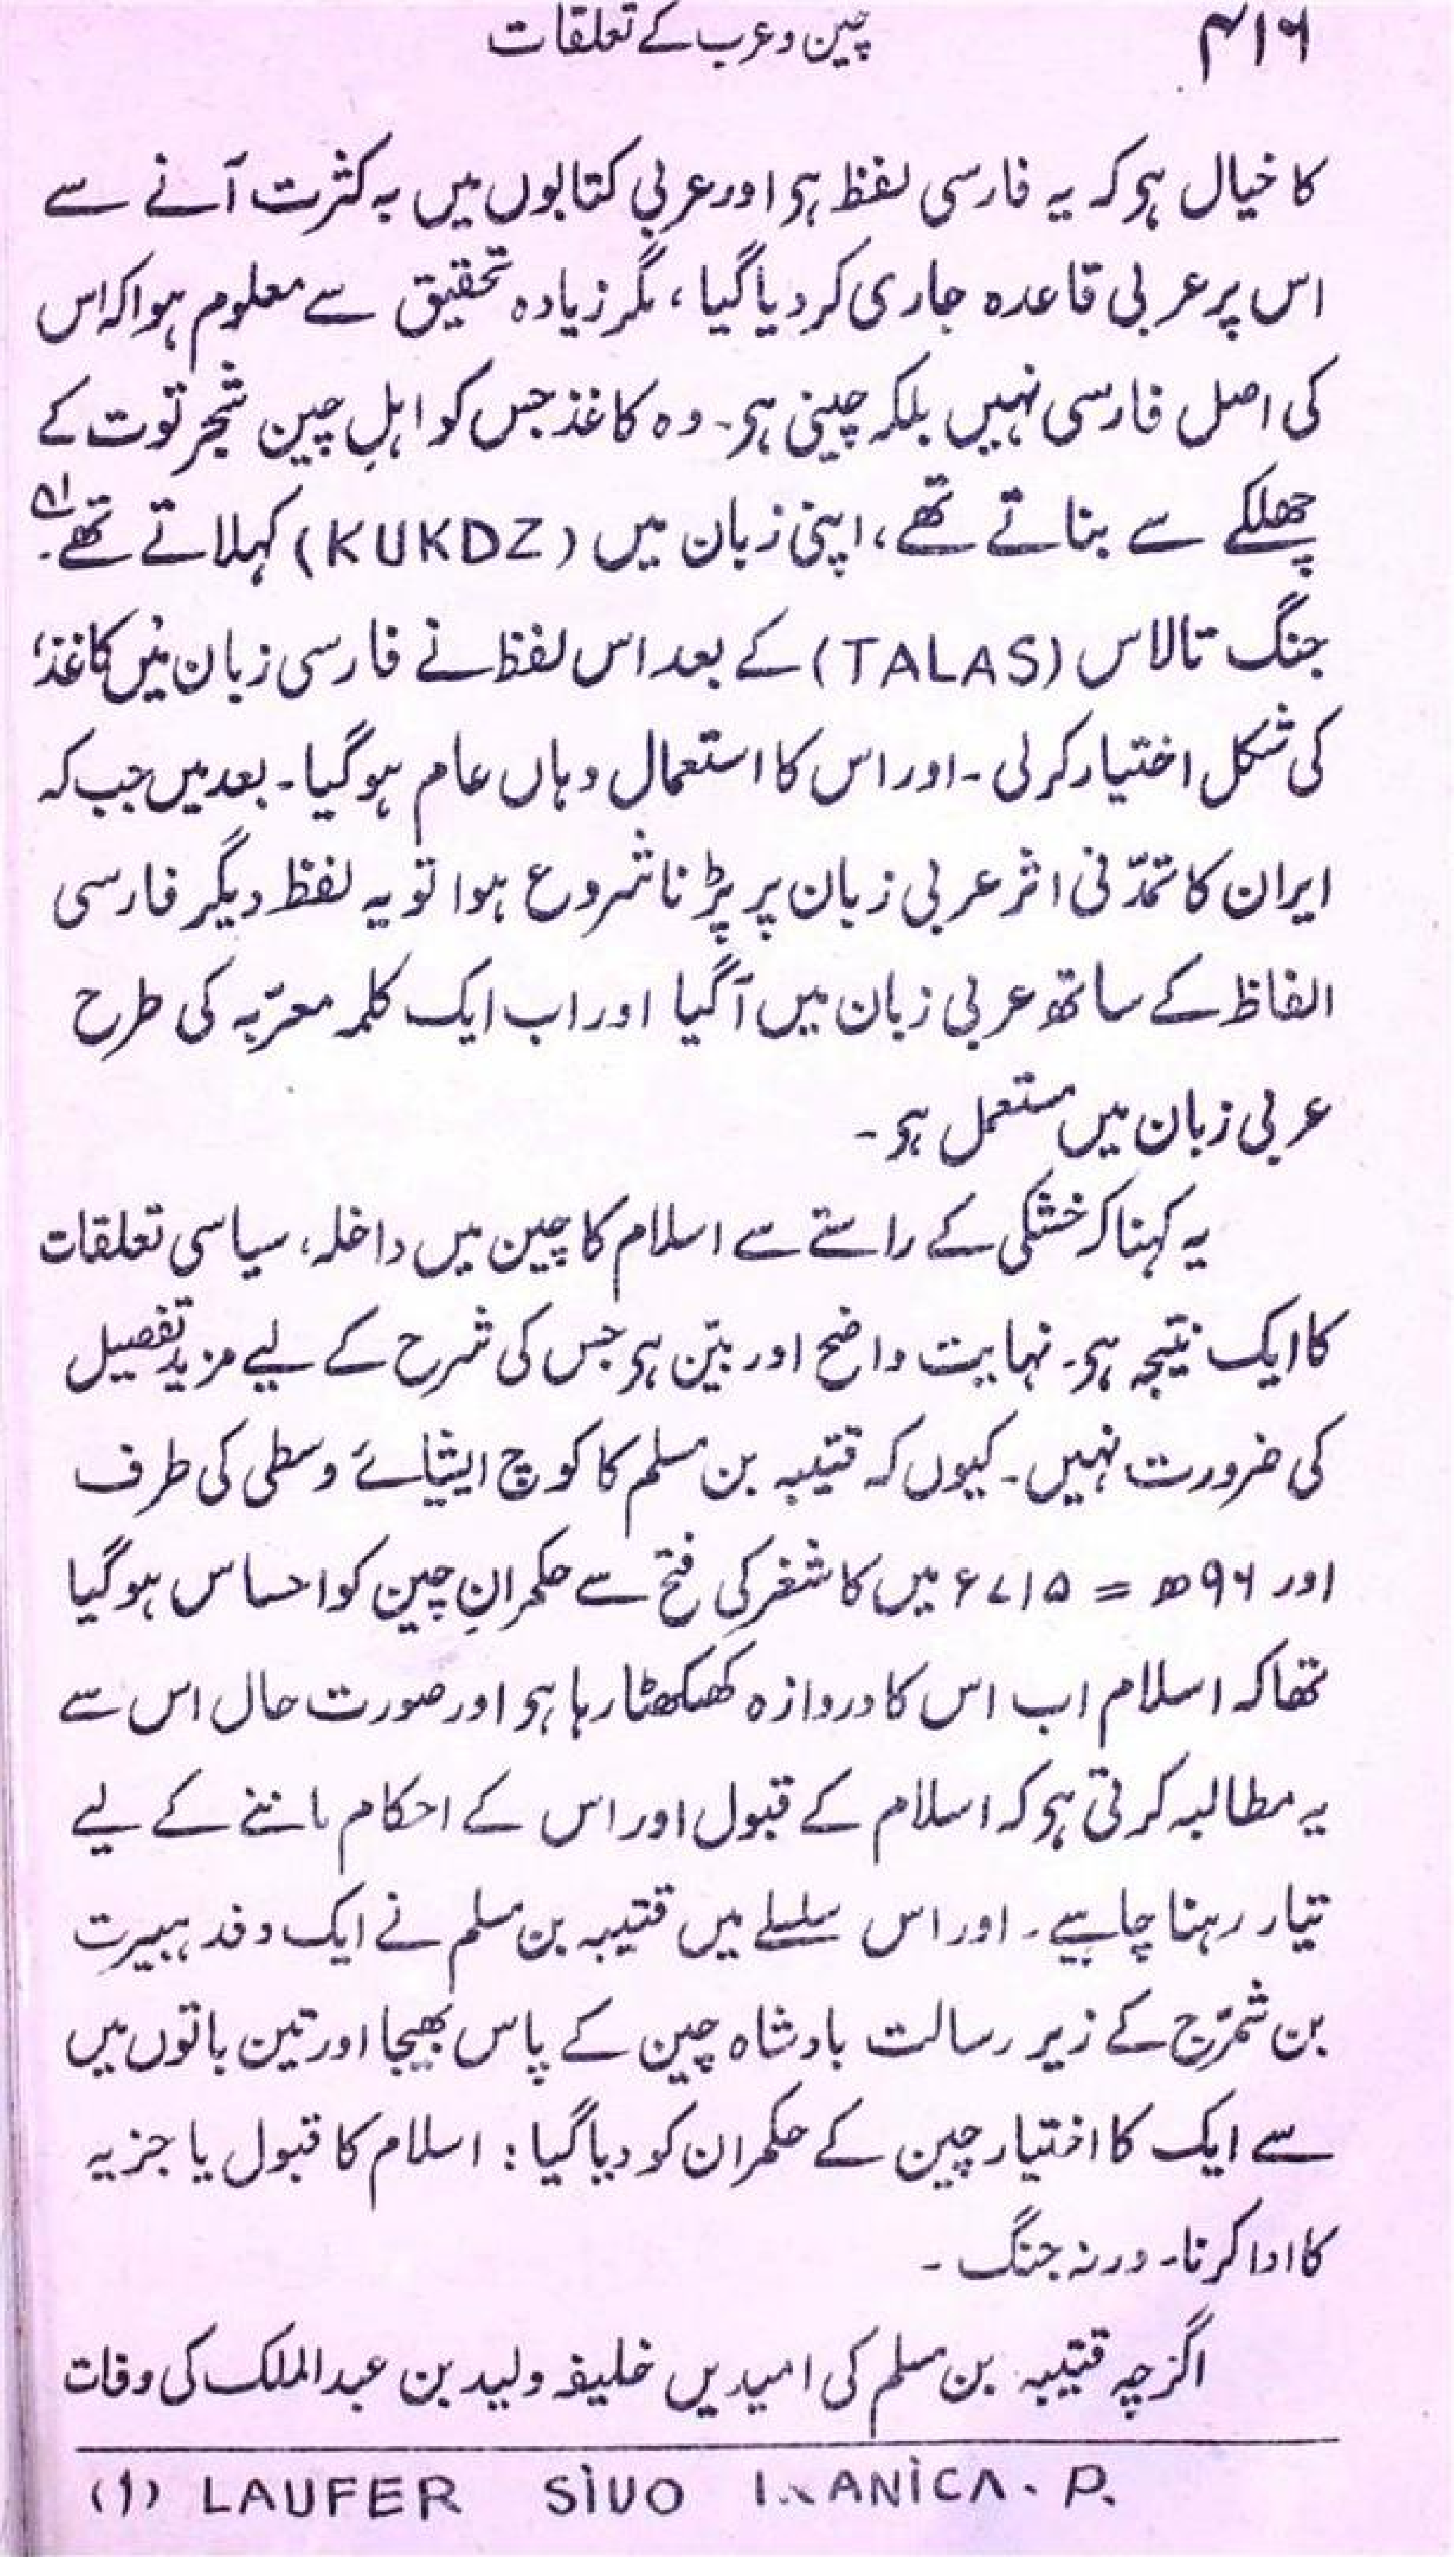 ۴۱۶
چین و عرب کے تعلقات
کا خیال ہو کہ یہ فارسی لفظ ہو اور عربی کتابوں میں بہ کثرت آنے سے
اس پر عربی قاعدہ جاری کر دیا گیا، مگر زیادہ تحقیق سے معلوم ہوا کہ اس
کی اصل فارسی نہیں بلکہ چینی ہو۔ وہ کاغذ جس کو اہلِ چین شجر توت کے
چھلکے سے بناتے تھے، اپنی زبان میں (KUKDZ) کہلاتے تھے۔
جنگ تالاس (TALAS) کے بعد اس لفظ نے فارسی زبان میں ’کاغذ‘
کی شکل اختیار کر لی۔ اور اس کا استعمال وہاں عام ہو گیا۔ بعد میں جب کہ
ایران کا تمدّنی اثر عربی زبان پر پڑنا شروع ہوا تو یہ لفظ دیگر فارسی
الفاظ کے ساتھ عربی زبان میں آ گیا اور اب ایک کلمہ معرّبہ کی طرح
عربی زبان میں مستعمل ہو۔
یہ کہنا کہ خشکی کے راستے سے اسلام کا چین میں داخلہ، سیاسی تعلقات
کا ایک نتیجہ ہو۔ نہایت واضح اور بیّن ہو جس کی شرح کے لیے مزید تفصیل
کی ضرورت نہیں۔ کیوں کہ قتیبہ بن مسلم کا کوچ ایشیائے وسطی کی طرف
اور ۹۶ھ = ۷۱۵ء میں کاشغر کی فتح سے حکمرانِ چین کو احساس ہو گیا
تھا کہ اسلام اب اس کا دروازہ کھٹکھٹا رہا ہو اور صورت حال اس سے
یہ مطالبہ کرتی ہو کہ اسلام کے قبول اور اس کے احکام ماننے کے لیے
تیار رہنا چاہیے۔ اور اس سلسلے میں قتیبہ بن مسلم نے ایک وفد ہبیرت
بن شمرّج کے زیر رسالت بادشاہ چین کے پاس بھیجا اور تین باتوں میں
سے ایک کا اختیار چین کے حکمران کو دیا گیا: اسلام کا قبول یا جزیہ
کا ادا کرنا۔ ورنہ جنگ۔
اگرچہ قتیبہ بن مسلم کی امیدیں خلیفہ ولید بن عبدالملک کی وفات
(1) LAUFER SIUO IRANICA. P.